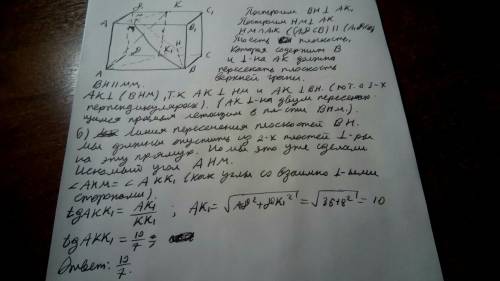 Построим BH⊥AK₁
Построим HM⊥AK
HM∩AK ((A₁D₁CB)||
То есть плоскость,
которая содержит B
и ⊥-на AK должна
пересекать плоскость
верхней грани.
A₁ B₁ K C₁
A D K₁ H B C M
BH||мм.
AK⊥(BHM), т.к AK⊥HM и AK⊥BH. (по т. о 3-х
перпендикулярах). (AK⊥-на двум пересекаю-
щимся прямым лежащим в пл-сти BHM.).
б) Линия пересечения плоскостей BH.
Мы должны опустить из 2-х плостей ⊥-ры
на эту прямую. Но мы это уже сделали
Искомый угол AHM.
∠AHM=∠AKK₁ (как углы со взаимно ⊥-ыми
сторонами).
tgAKK₁=AK₁/KK₁; AK₁=√(AD²+DK₁²)=√(36+8²)=10
tgAKK₁=10/7;
Ответ: 10/7.